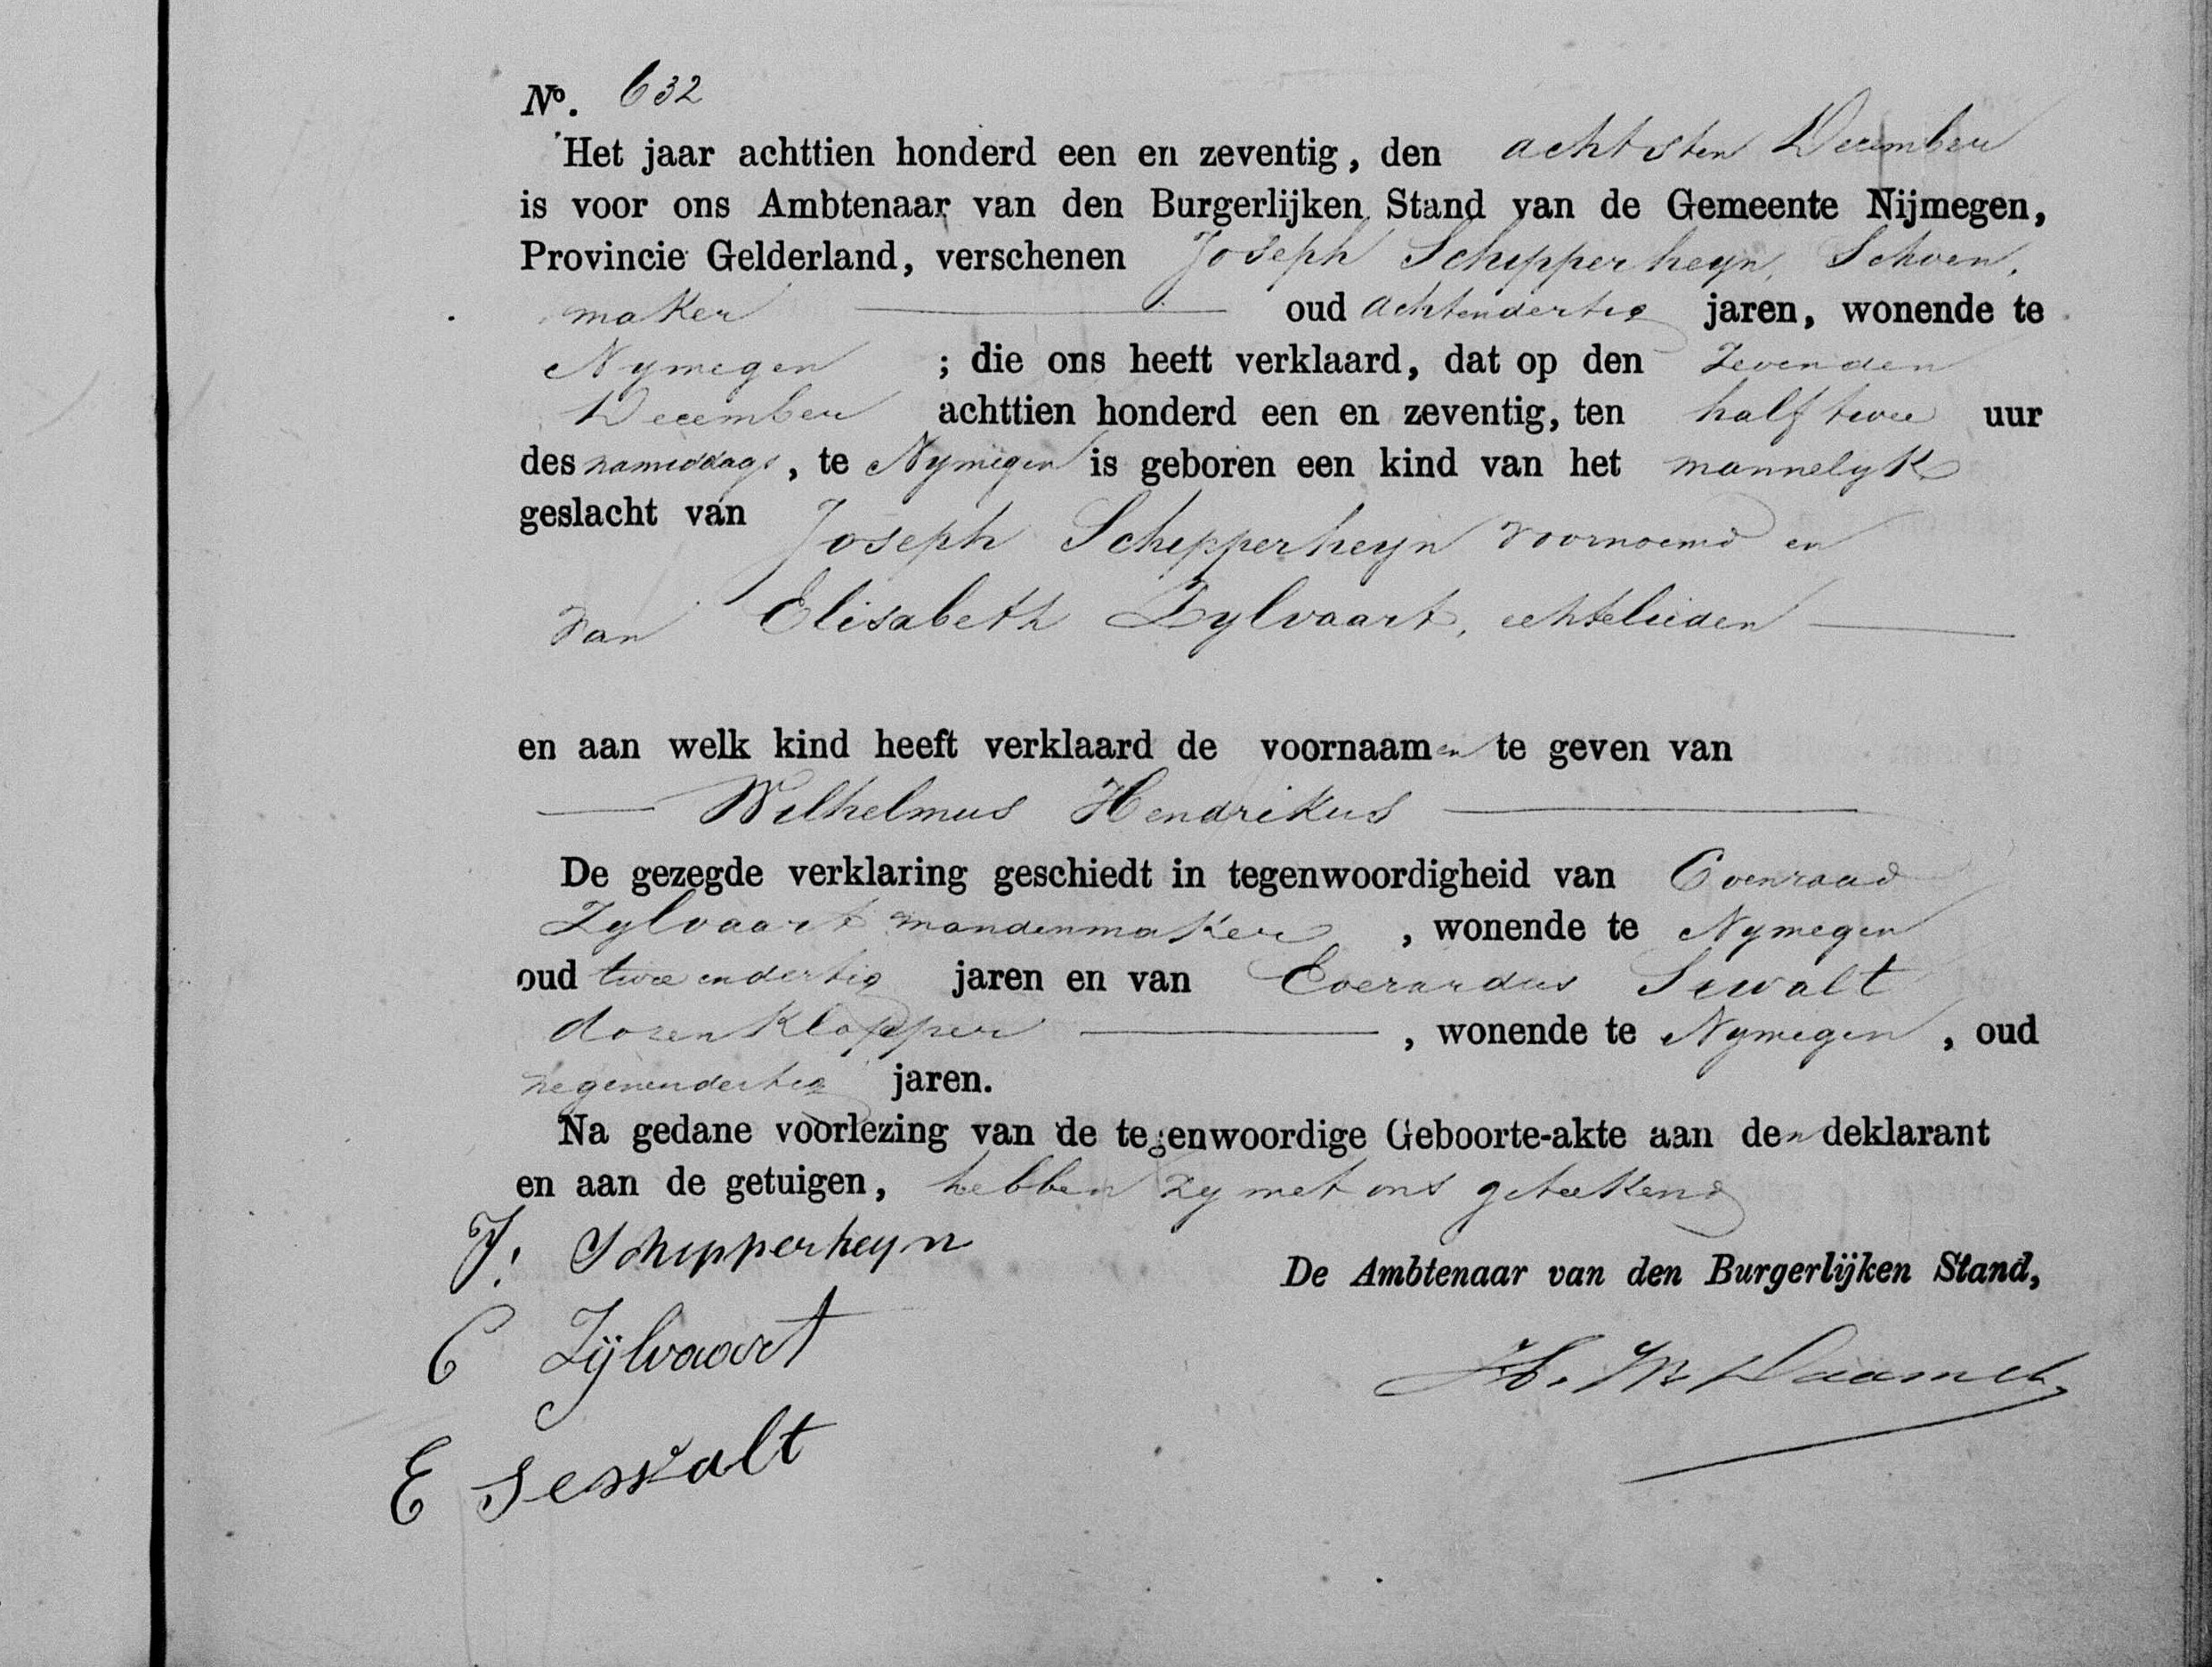 No. 632
Het jaar achttien honderd een en zeventig, den achtsten December
is voor ons Ambtenaar van den Burgerlijken Stand van de Gemeente Nijmegen,
Provincie Gelderland, verschenen Joseph Schipperheyn, Schoen,
maker oud achtendertig jaren, wonende te
Nymegen ; die ons heeft verklaard, dat op den Zevenden
December achttien honderd een en zeventig, ten half twee uur
des namiddags, te Nymegen is geboren een kind van het mannelyk
geslacht van Joseph Schipperheyn voornoemd en
van Elisabeth Zylvaart, echtelieden
en aan welk kind heeft verklaard de voornaamen te geven van
Wilhelmus Hendrikus
De gezegde verklaring geschiedt in tegenwoordigheid van Coenraad
Zylvaart mandenmaker, wonende te Nymegen
oud twee endertig jaren en van Everardus Sewalt
dozenklopper, wonende te Nymegen, oud
negenendertig jaren.
Na gedane voorlezing van de tegenwoordige Geboorte-akte aan den deklarant
en aan de getuigen, hebben zy met ons geteekend
J: Schipperheyn
De Ambtenaar van den Burgerlijken Stand,
C Zijlvaart
E Sewalt